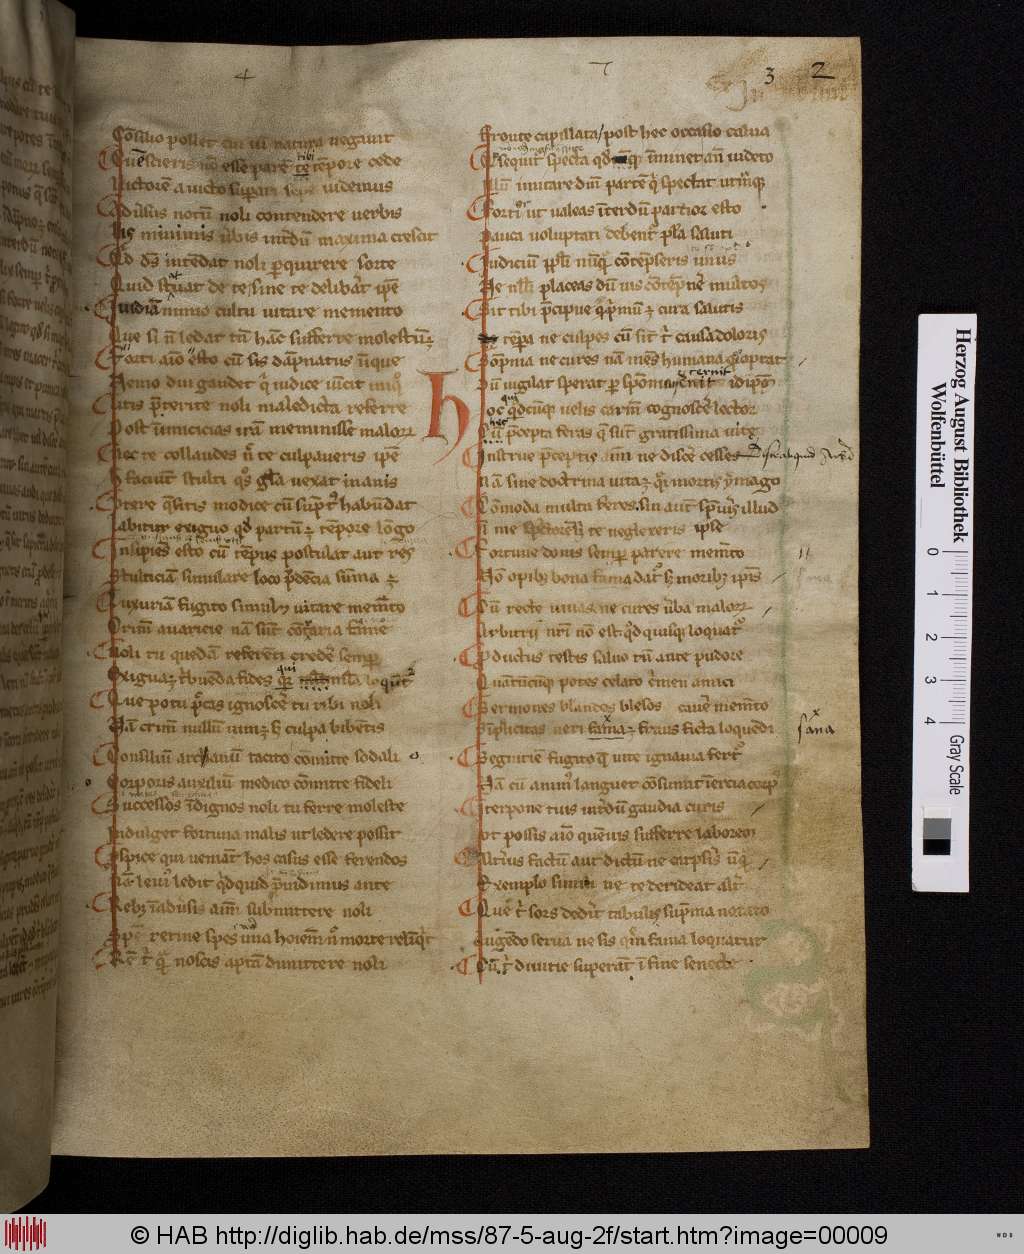 4 7 3 2
Cōsilio pollet cui vī natura negauit
Quē scieris nō esse parē tibi tēpore cede
Victorē a uicto supari sepe uidemus
Aduersus notū noli contendere uerbis
Lis minimis ūbis int̄dū maxima crescit
Qd dš intēdat noli ꝑquirere sorte
Quid statuat de te sine te deliberat ipē
Inuidiā nimio cultu uitare memento
Que si n̄ ledat tn̄ hāc sufferre molestū ꝫ
Forti aīo esto cū sis dāpnatus inique
Nemo diu gaudet qͥ iudice uīcit iniqͦ
Litis p̄terite noli maledicta referre
Post inimicias irā meminisse malorꝝ
Nec te collaudes n̄ te culpaueris ipē
h̓ faciūt stulti qͦs gl̄a uexat inanis
Vtere q̄sitis modice cū supt̓ habūdat
Labitur exiguo qd partū ꝫ tēpore lōgo
Insipiēs esto cū tēpus postulat aut res
Stulticiā simulare loco prudēcia sūma ꝫ
Luxuriā fugito simulqꝫ uitare memēto
Crimē auaricie nā sūt cōtraria fame
Noli tu quedā referēti credē semꝑ
Exigua ꝫ tribuenda fides qꝛ qui multa loqūt̓
Que potu pccas ignoscē tu tibi noli
Nā crimē nullū uini ꝫ h̓ culpa bibētis
Consiliū archanū tacito cōmitte sodali
Corporis auxiliū medico cōmitte fideli
Successus īdignos noli tu ferre moleste
Indulget fortuna malis ut ledere possit
Prospice qui ueniāt hos casus esse ferendos
Nā leuiꝰ ledit qͥdquid p̄uidimus ante
Rebꝫ īaduersis aīm submittere noli
Spē retine spes una hoiēm n̄ morte relīqͥt
Rē t̄ qͣ noscis aptā dimittere noli
Fronte capillata / post hec occasio calua
Qd sequit̓ specta qd īminet aū uideto
Illū imitare dm̄ partē qͥ spectat utrāqꝫ
Fortiꝰ ut ualeas īterdū partior esto
Pauca uoluptati debent̓ pl̄a saluti
Iudiciū ppl̄i nūqͣ cōtēpseris unus
Ne nulli placeas dū uis cōtēpn̄e multos
Sit tibi p̄cipue qͥ pmū ꝫ cura salutis
tēpa ne culpes cū sit t̄ causa doloris
Sōpnia ne cures nā mēs humana qd optat
Dū uigilat sperat ꝑ sōpnū cernit idipm̄
Hoc qͥcūqꝫ uelis carmē cognosce lector
Cū p̄cepta feras q̄ sūt gratissima uite
Instrue p̄ceptis aīm ne discē cesses
Nā sine doctrina uita ꝫ qͣi mortis ymago
Cōmoda multa feres sin aut̄ sp̄ueris illud
Nō me sc̄ptorē s̓ te neglexeris ipse
Fortune donis semꝑ parere memēto
Nō opibꝫ bona fama dat̓ s̓ moribꝫ ipis
Cū recte uiuas ne cures ūba malorꝝ
Arbitrii nr̄i nō est qͥd quisqꝫ loquat̓
Pductus testis saluo tn̄ ante pudore
Quātūcūqꝫ potes celato cͥmen amici
Sermones blandos blesos cauē memēto
Simplicitas ueri fama ꝫ fraus ficta loquēdi
sana
Segnitiē fugito que uite ignauia fert̓
Nā cū animꝰ languet cōsumit īercia corpꝰ
Interpone tuis int̄dū gaudia curis
Vt possis aīo quēuis sufferre laborem
Alteriꝰ factū aut dictū ne carpseris ūqͣ
Exemplo simili ne te derideat alt̄
Que t̄ sors dederit tabulis suprema notato
Augēdo serua ne sis quē fama loquatur
Cū t̄ diuitie superāt ī fine senecte
Herzog August Bibliothek
Wolfenbüttel
0 1 2 3 4
Gray Scale
© HAB http://diglib.hab.de/mss/87-5-aug-2f/start.htm?image=00009